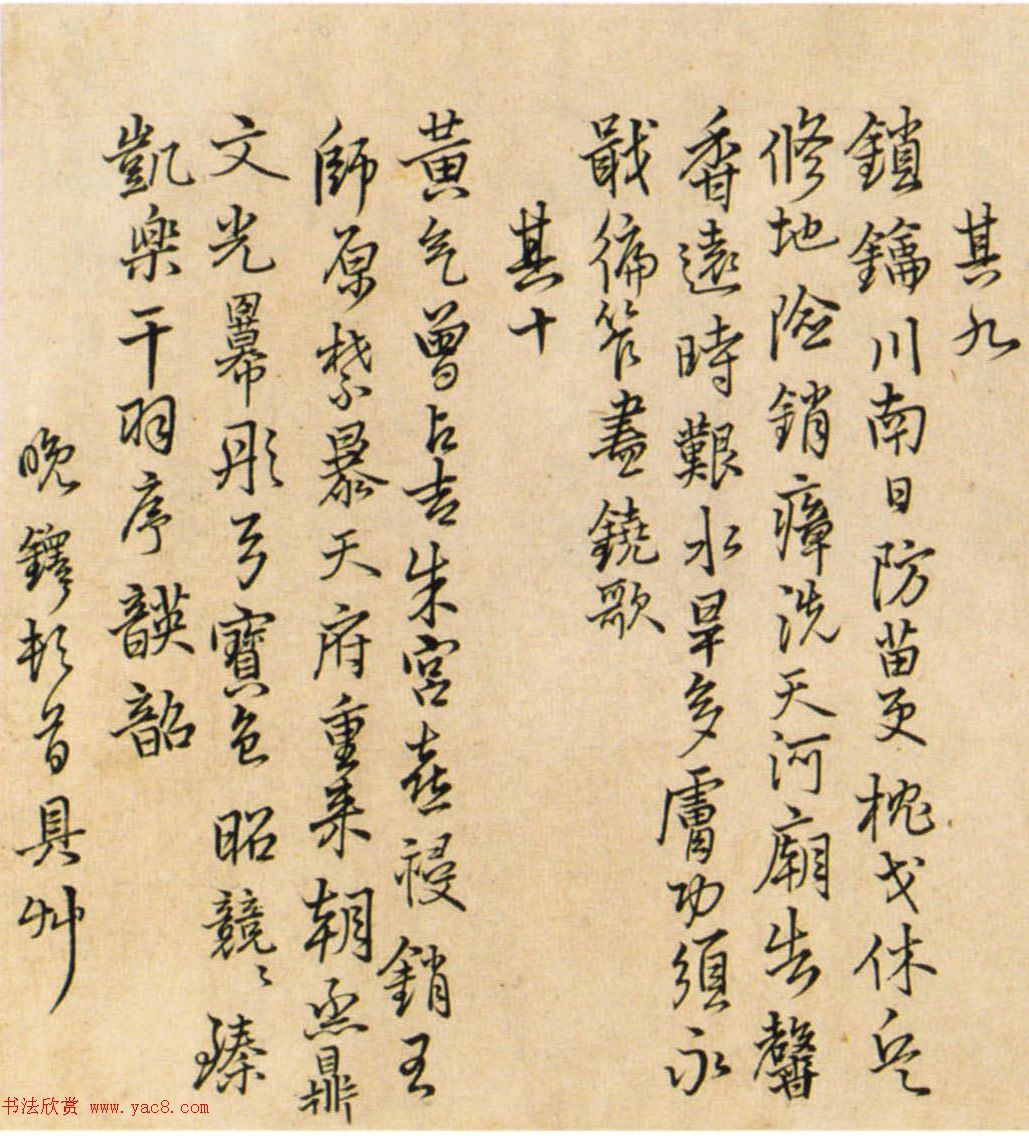 其九
鎖鑰川南日防苗更枕戈休兵
修地險銷瘴洗天河廟告馨
香遠時艱水旱多膚功須永
戢偏笮盡鐃歌
其十
黃气曾占吉朱宮喜祲銷王
師原禁暴天府重來朝烝鼎
文光冪彤弓寶色昭競〻臻
凱樂干羽序韺韶
晚鐸頓首具艸
书法欣赏 www.yac8.com